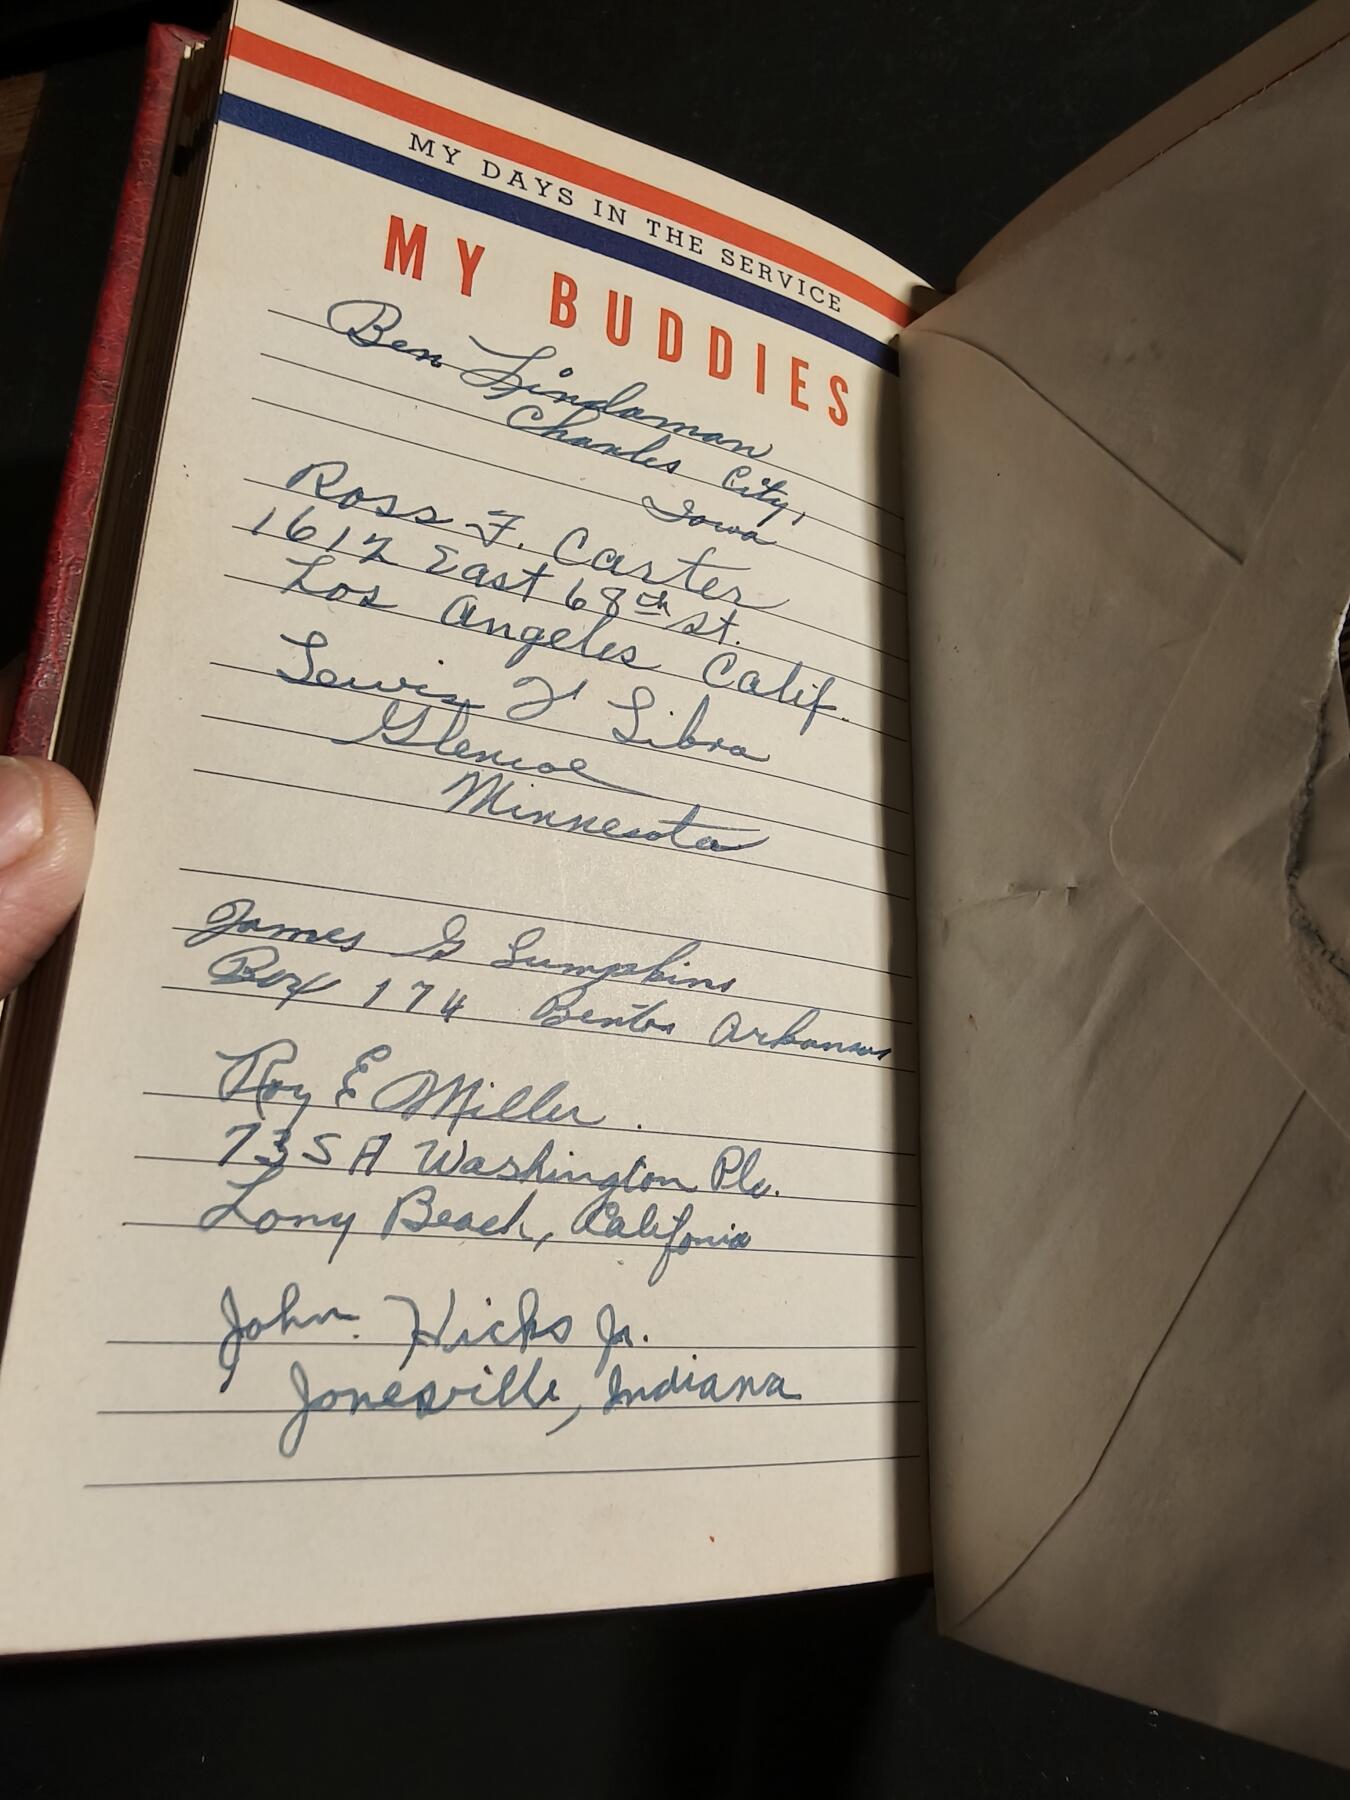 MY DAYS IN THE SERVICE
MY BUDDIES
Ben Lindaman
Charles City,
Iowa
Ross F. Carter
1612 East 68th St.
Los Angeles Calif.
Lewis F Libra
Glencoe
Minnesota
James G Lumpkins
Box 174 Benton Arkansas
Roy E Miller.
735 A Washington Plc.
Long Beach, Califonia
John Hicks Jr.
Jonesville, Indiana